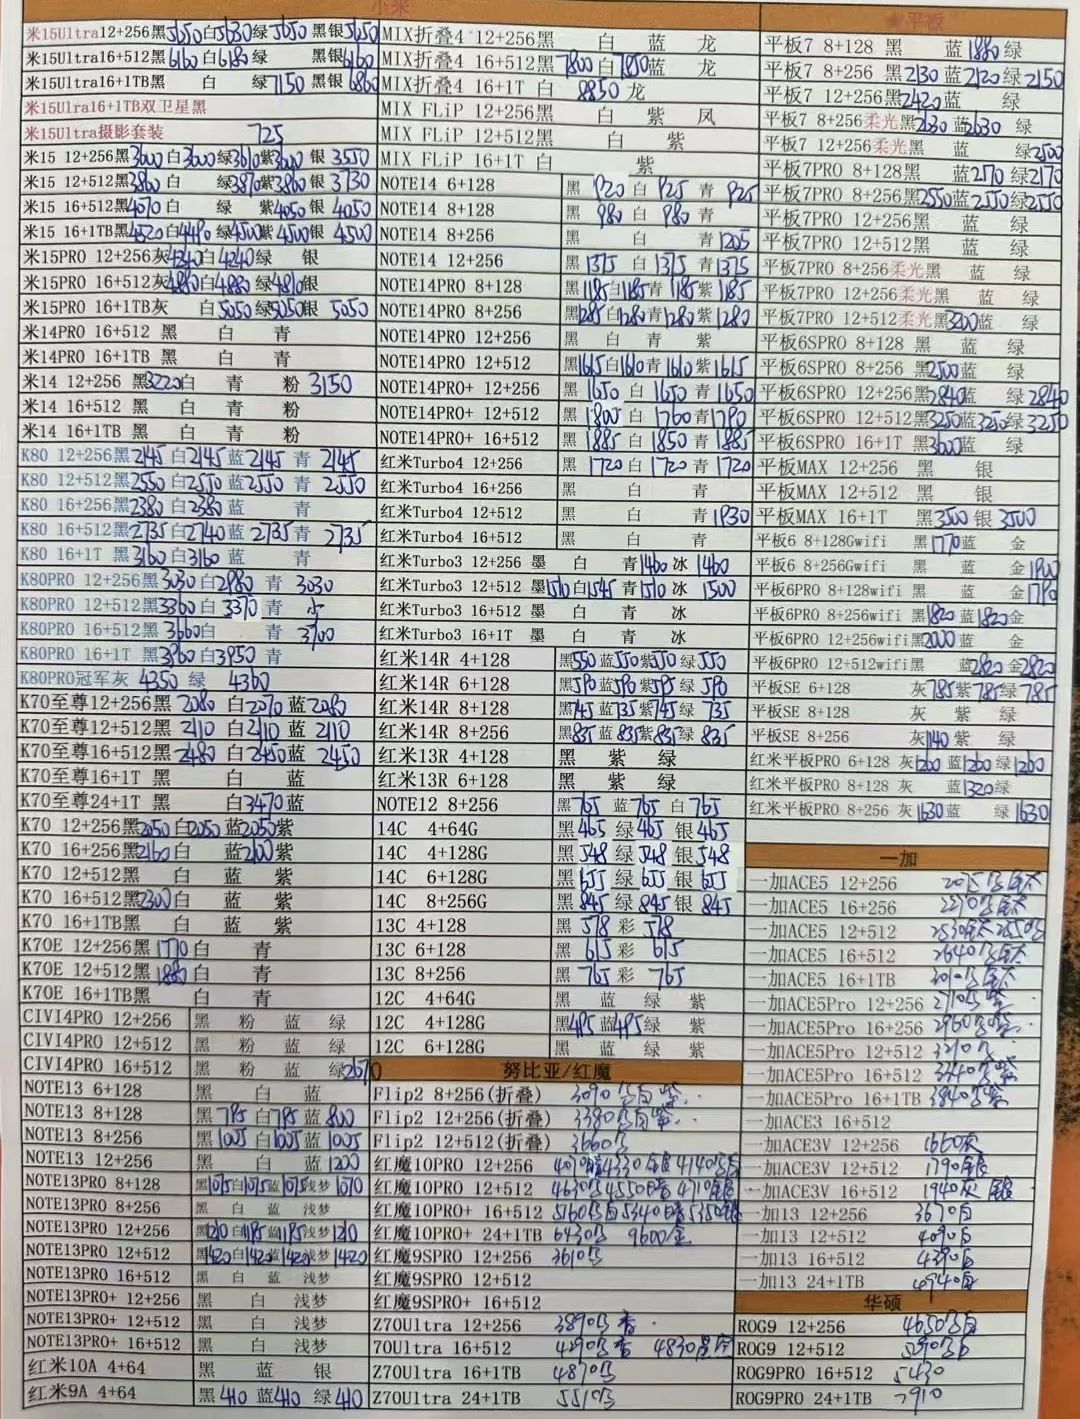 小米
米15Ultra12+256黑5650白5630绿5650 黑银5650
米15Ultra16+512黑6160白6180绿 黑银6160
米15Ultra16+1TB黑 白 绿7150 黑银6860
米15Ulra16+1TB双卫星黑
米15Ultra摄影套装 725
米15 12+256黑3600白3600绿3610紫3600 银 3550
米15 12+512黑3860白 绿3870紫3860 银 3730
米15 16+512黑4070白 绿 紫4050银 4050
米15 16+1TB黑4520白4490绿4500紫4500银 4500
米15PRO 12+256灰4240白4240绿 银
米15PRO 16+512灰4880白4880绿4810银
米15PRO 16+1TB灰 白5050绿5050银 5050
米14PRO 16+512 黑 白 青
米14PRO 16+1TB 黑 白 青
米14 12+256 黑3220白 青 粉 3150
米14 16+512 黑 白 青 粉
米14 16+1TB 黑 白 青 粉
K80 12+256黑2145白2145蓝2145 青 2145
K80 12+512黑2550白2550蓝2550 青 2550
K80 16+256黑2380白2380蓝 青
K80 16+512黑2735白2740蓝2735青 2735
K80 16+1T 黑3160白3160蓝 青
K80PRO 12+256黑3030白2980 青 3030
K80PRO 12+512黑3360白 3370 青
K80PRO 16+512黑3660白 青 3700
K80PRO 16+1T 黑3960白3950 青
K80PRO冠军灰 4350 绿 4360
K70至尊12+256黑 2080 白2070 蓝2080
K70至尊12+512黑 2110 白2110 蓝 2110
K70至尊16+512黑 2480 白2450蓝 2450
K70至尊16+1T 黑 白 蓝
K70至尊24+1T 黑 白3470蓝
K70 12+256黑2050白2050 蓝2050紫
K70 16+256黑2160白 蓝2100紫
K70 12+512黑 白 蓝 紫
K70 16+512黑2300白 蓝 紫
K70 16+1TB黑 白 蓝 紫
K70E 12+256黑1770白 青
K70E 12+512黑1880白 青
K70E 16+1TB黑 白 青
CIVI4PRO 12+256 黑 粉 蓝 绿
CIVI4PRO 12+512 黑 粉 蓝 绿
CIVI4PRO 16+512 黑 粉 蓝 绿2670
NOTE13 6+128 黑 白 蓝
NOTE13 8+128 黑 785 白785 蓝 800
NOTE13 8+256 黑1005白1005蓝1005
NOTE13 12+256 黑 白 蓝1200
NOTE13PRO 8+128 黑1075白1075蓝1075浅梦1070
NOTE13PRO 8+256 黑 白 蓝 浅梦
NOTE13PRO 12+256 黑1210白1185蓝1185浅梦1210
NOTE13PRO 12+512 黑1420白1420蓝1420浅梦1420
NOTE13PRO 16+512 黑 白 蓝 浅梦
NOTE13PRO+ 12+256 黑 白 浅梦
NOTE13PRO+ 12+512 黑 白 浅梦
NOTE13PRO+ 16+512 黑 白 浅梦
红米10A 4+64 黑 蓝 银
红米9A 4+64 黑410 蓝410 绿410
MIX折叠4 12+256黑 白 蓝 龙
MIX折叠4 16+512黑7800白7850蓝 龙
MIX折叠4 16+1T 白 8850 龙
MIX FLiP 12+256黑 白 紫 凤
MIX FLiP 12+512黑 白 紫
MIX FLiP 16+1T 白 紫
NOTE14 6+128 黑 920 白 925 青 925
NOTE14 8+128 黑 980 白 980 青
NOTE14 8+256 黑 白 青1205
NOTE14 12+256 黑1375 白 1375 青1375
NOTE14PRO 8+128 黑1185白1185青1185紫1185
NOTE14PRO 8+256 黑1285白1280青1280紫1280
NOTE14PRO 12+256 黑 白 青 紫
NOTE14PRO 12+512 黑1615白1610青1610紫1615
NOTE14PRO+ 12+256 黑1650 白 1650 青1650
NOTE14PRO+ 12+512 黑1800白 1760青1780
NOTE14PRO+ 16+512 黑1885白 1850 青1885
红米Turbo4 12+256 黑 1720 白 1720 青 1720
红米Turbo4 16+256 黑 白 青
红米Turbo4 12+512 黑 白 青1930
红米Turbo4 16+512 黑 白 青
红米Turbo3 12+256 墨 白 青1460 冰 1460
红米Turbo3 12+512 墨1510白1545青1510冰 1500
红米Turbo3 16+512 墨 白 青 冰
红米Turbo3 16+1T 墨 白 青 冰
红米14R 4+128 黑550蓝550紫550绿550
红米14R 6+128 黑590蓝590紫595绿590
红米14R 8+128 黑745蓝735紫745绿 735
红米14R 8+256 黑835蓝835紫835绿 835
红米13R 4+128 黑 紫 绿
红米13R 6+128 黑 紫 绿
NOTE12 8+256 黑765 蓝765 白765
14C 4+64G 黑465 绿465 银465
14C 4+128G 黑548 绿548 银548
14C 6+128G 黑655 绿655 银655
14C 8+256G 黑845 绿845 银845
13C 4+128 黑 578 彩 578
13C 6+128 黑 615 彩 615
13C 8+256 黑 765 彩 765
12C 4+64G 黑 蓝 绿 紫
12C 4+128G 黑495蓝495绿 紫
12C 6+128G 黑 蓝 绿 紫
努比亚/红魔
Flip2 8+256(折叠) 3090
Flip2 12+256(折叠) 3380
Flip2 12+512(折叠) 3660
红魔10PRO 12+256 4070 4330 4140
红魔10PRO 12+512 4630 4550 4710
红魔10PRO+ 16+512 5160 5340 5350
红魔10PRO+ 24+1TB 6430 9600金
红魔9SPRO 12+256 3610
红魔9SPRO 12+512
红魔9SPRO+ 16+512
Z70Ultra 12+256 3890
70Ultra 16+512 4290 4830
Z70Ultra 16+1TB 4870
Z70Ultra 24+1TB 5510
★平板
平板7 8+128 黑 蓝1880绿
平板7 8+256 黑2130蓝2120绿2150
平板7 12+256黑2420蓝 绿
平板7 8+256柔光黑2630蓝2630 绿
平板7 12+256柔光黑 蓝 绿2500
平板7PRO 8+128黑 蓝2170绿2170
平板7PRO 8+256黑2550蓝2550绿2550
平板7PRO 12+256黑 蓝 绿
平板7PRO 12+512黑 蓝 绿
平板7PRO 8+256柔光黑 蓝 绿
平板7PRO 12+256柔光黑 蓝 绿
平板7PRO 12+512柔光黑3200蓝 绿
平板6SPRO 8+128 黑 蓝 绿
平板6SPRO 8+256 黑2500蓝 绿
平板6SPRO 12+256黑2840蓝 绿2840
平板6SPRO 12+512黑3250蓝3250绿3250
平板6SPRO 16+1T 黑3600蓝 绿
平板MAX 12+256 黑 银
平板MAX 12+512 黑 银
平板MAX 16+1T 黑3500 银 3500
平板6 8+128Gwifi 黑1770蓝 金
平板6 8+256Gwifi 黑 蓝 金1900
平板6PRO 8+128wifi 黑 蓝 金1790
平板6PRO 8+256wifi 黑1820蓝1820金
平板6PRO 12+256wifi黑2000蓝 金
平板6PRO 12+512wifi黑 蓝2820金2820
平板SE 6+128 灰785紫785绿785
平板SE 8+128 灰 紫 绿
平板SE 8+256 灰1140紫 绿
红米平板PRO 6+128 灰1260 蓝1260 绿1260
红米平板PRO 8+128 灰 蓝1320绿
红米平板PRO 8+256 灰1630蓝 绿1630
一加
一加ACE5 12+256 2075
一加ACE5 16+256 2270
一加ACE5 12+512 2530 2550
一加ACE5 16+512 2640
一加ACE5 16+1TB 3010
一加ACE5Pro 12+256 2710
一加ACE5Pro 16+256 2960
一加ACE5Pro 12+512 3210
一加ACE5Pro 16+512 3340
一加ACE5Pro 16+1TB 3840
一加ACE3 16+512
一加ACE3V 12+256 1660灰
一加ACE3V 12+512 1790
一加ACE3V 16+512 1940灰 银
一加13 12+256 3670白
一加13 12+512 4090
一加13 16+512 4390
一加13 24+1TB 4940
华硕
ROG9 12+256 4650
ROG9 12+512 5290
ROG9PRO 16+512 5430
ROG9PRO 24+1TB 7910